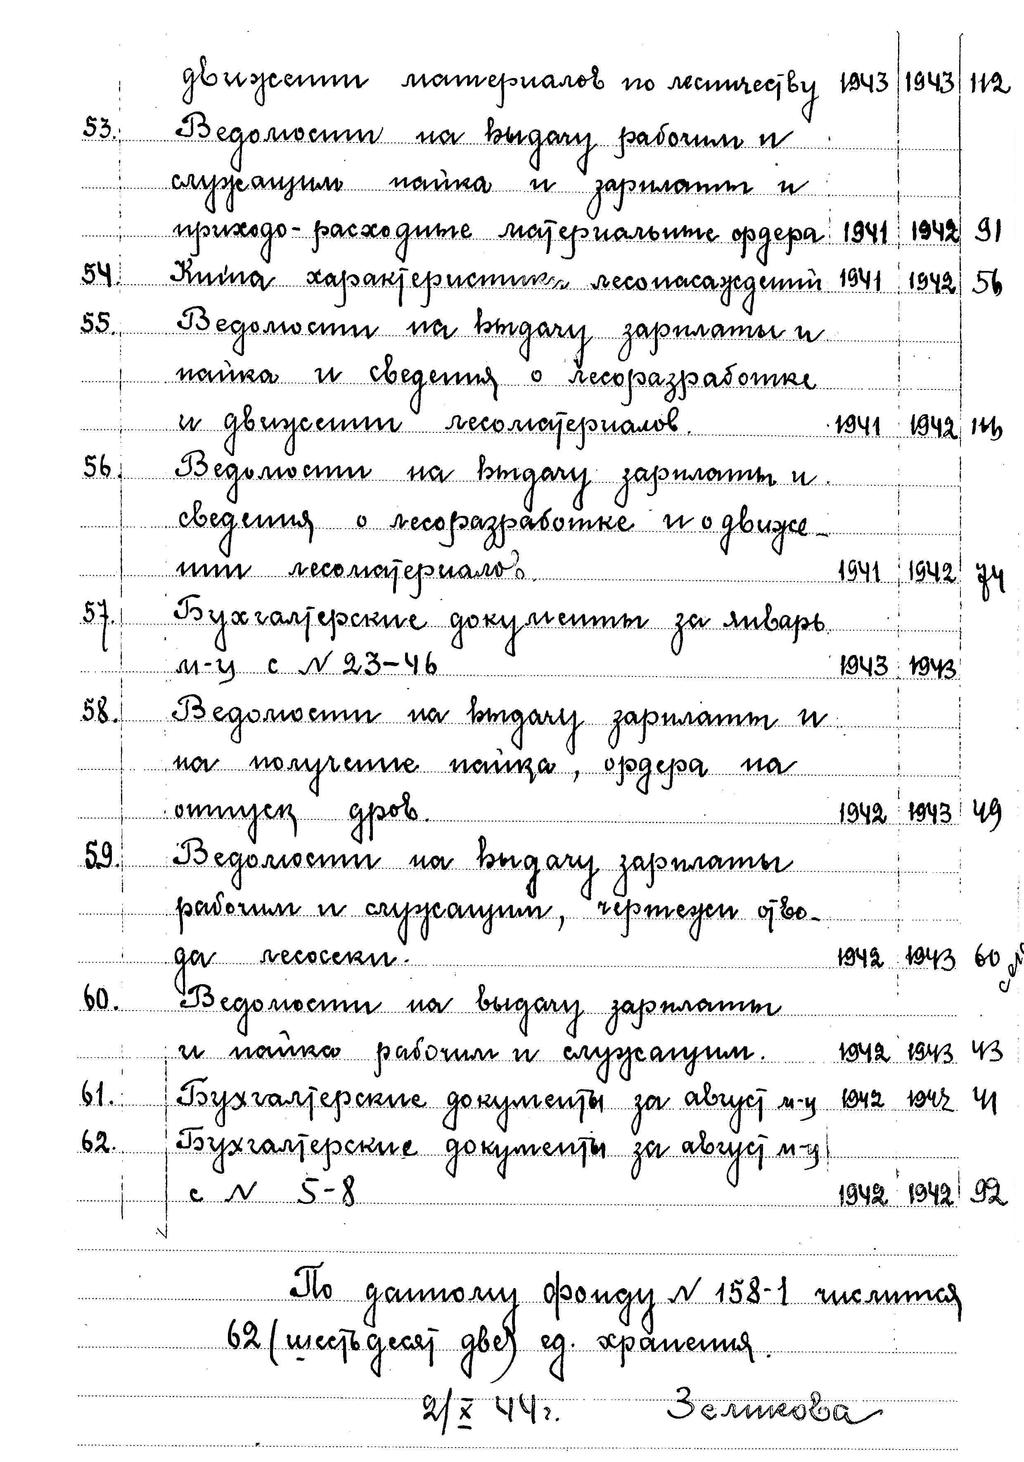 движении материалов по лесничеству 1943 1943 112
53. Ведомости на выдачу рабочим и
служащим пайка и зарплаты и
приходо-расходные материальные ордера 1941 1942 91
54. Книга характеристик лесонасаждений 1941 1942 56
55. Ведомости на выдачу зарплаты и
пайка и сведения о лесоразработке
и движении лесоматериалов. 1941 1942
56. Ведомости на выдачу зарплаты и
сведения о лесоразработке и о движе-
нии лесоматериалов. 1941 1942 74
57. Бухгалтерские документы за январь
м-ц с N 23-46 1943 1943
58. Ведомости на выдачу зарплаты и
на получение пайка, ордера на
отпуск дров. 1942 1943 49
59. Ведомости на выдачу зарплаты
рабочим и служащим, чертежи отво-
да лесосеки. 1942 1943 60
60. Ведомости на выдачу зарплаты
и пайка рабочим и служащим. 1942 1943 43
61. Бухгалтерские документы за август м-ц 1942 1942 41
62. Бухгалтерские документы за август м-ц
с N 5-8 1942 1942 92
По данному фонду N 158-1 числится
62 (шестьдесят две) ед. хранения.
2/X 44г. Зеликова